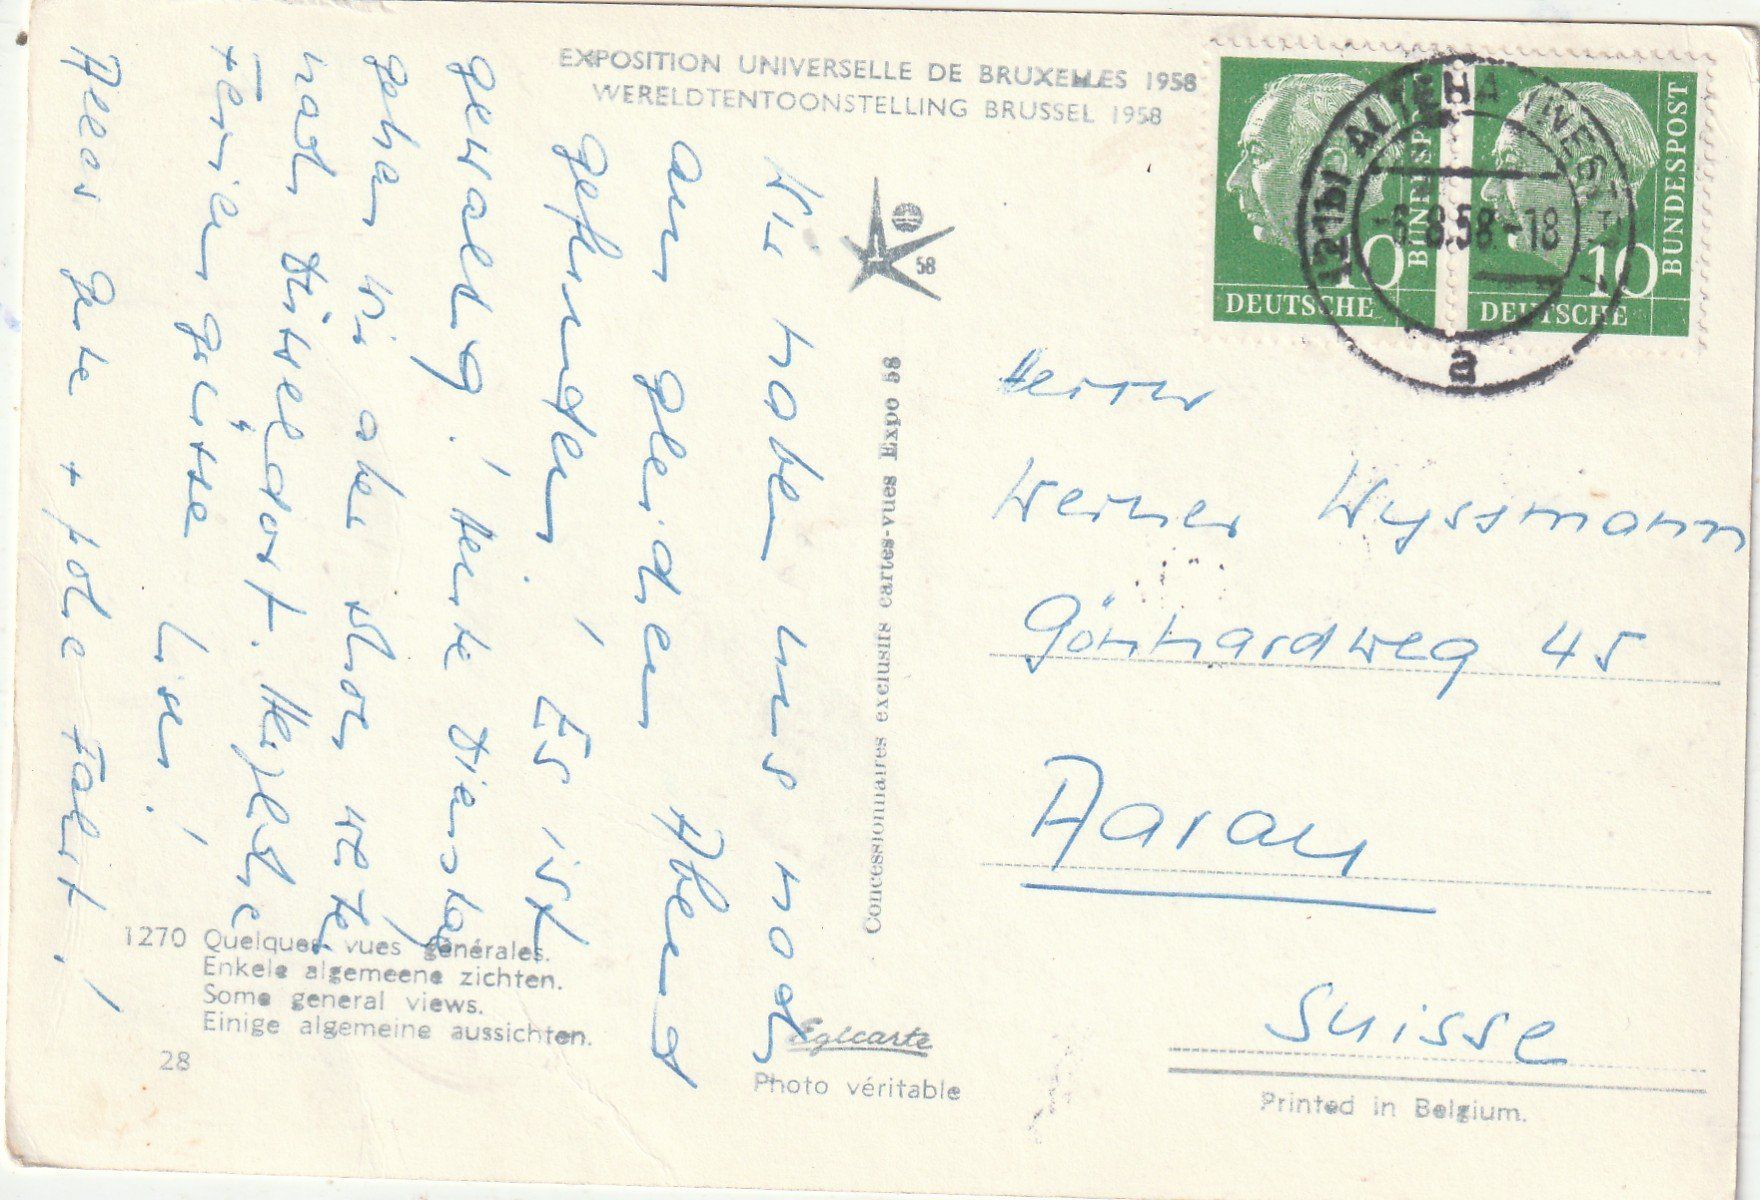 EXPOSITION UNIVERSELLE DE BRUXELLES 1958
WERELDTENTOONSTELLING BRUSSEL 1958
Wir haben uns noch
am gleichen Abend
gefunden! Es ist
gewaltig! Heute Dienstag
gehen wir aber schon
nach Düsseldorf. Herzliche
Feriengrüsse
Lisa!
Alles Gute + Fahrt!
58
Concessionnaires exclusifs cartes-vues Expo 58
BUNDESPOST
10
DEUTSCHE
BUNDESPOST
10
DEUTSCHE
(21b) ALTENA (WESTF)
-5.8.58-18
a
Herrn
Werner Wyssmann
Gönhardweg 45
Aarau
Suisse
1270 Quelques vues générales.
Enkele algemeene zichten.
Some general views.
Einige algemeine aussichten.
28
Eglcarte
Photo véritable
Printed in Belgium.